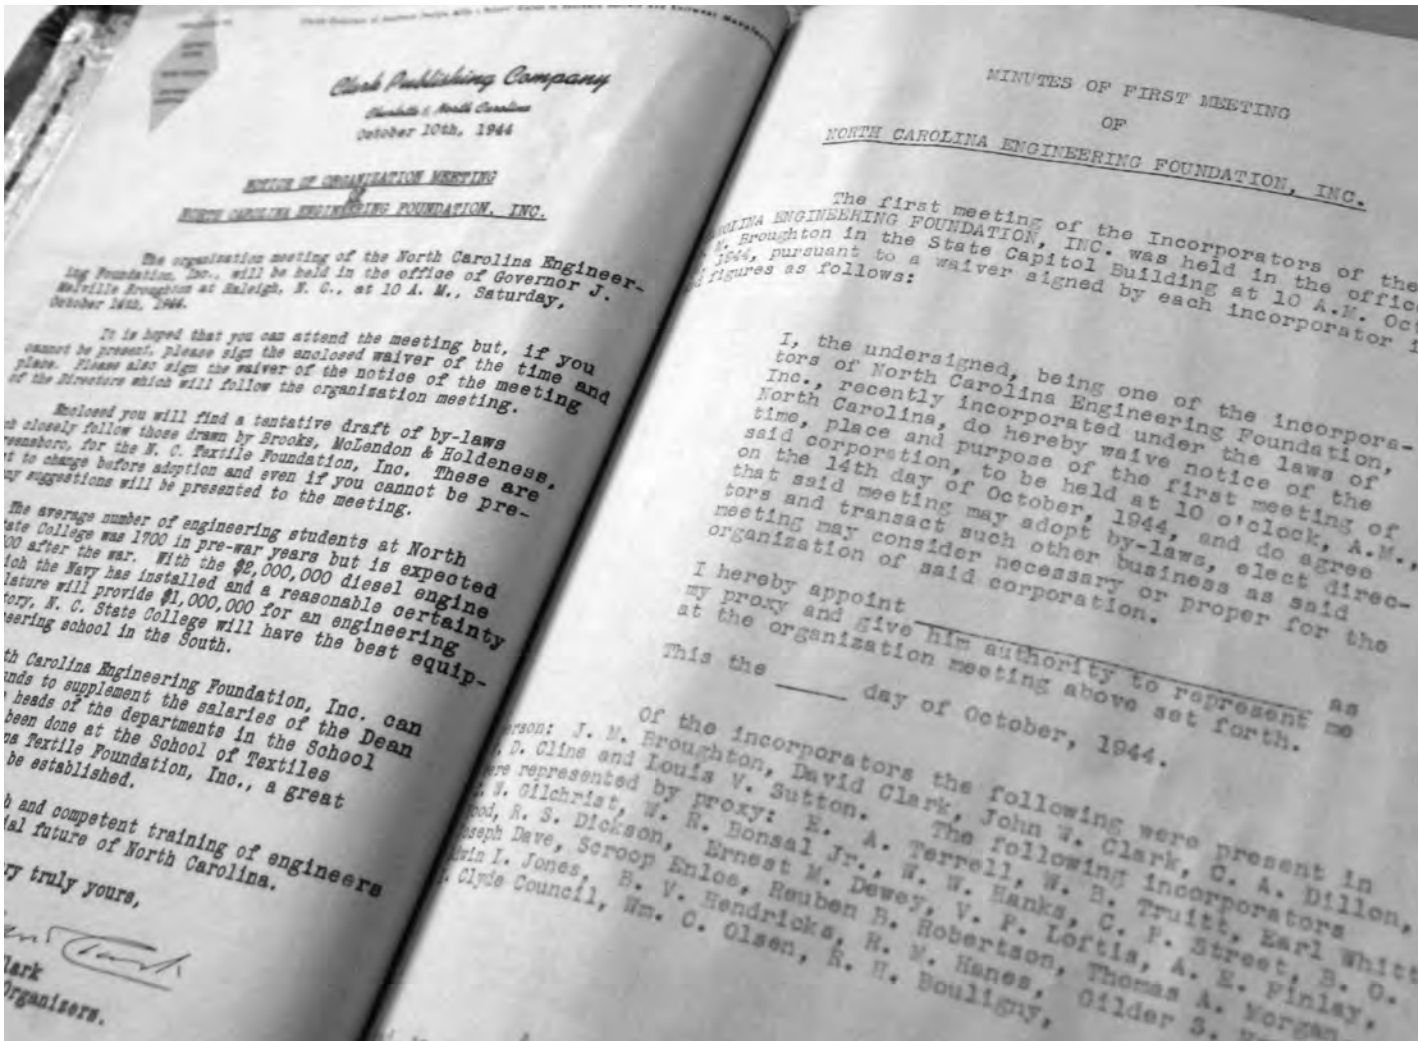 Clark Publishing Company
Charlotte 1, North Carolina
October 10th, 1944
NOTICE OF ORGANIZATION MEETING
OF
NORTH CAROLINA ENGINEERING FOUNDATION, INC.
The organization meeting of the North Carolina Engineer-
ing Foundation, Inc., will be held in the office of Governor J.
Melville Broughton at Raleigh, N. C., at 10 A. M., Saturday,
October 14th, 1944.
It is hoped that you can attend the meeting but, if you
cannot be present, please sign the enclosed waiver of the time and
place. Please also sign the waiver of the notice of the meeting
of the Directors which will follow the organization meeting.
Enclosed you will find a tentative draft of by-laws
closely follow those drawn by Brooks, McLendon & Holderness,
for the N. C. Textile Foundation, Inc. These are
to change before adoption and even if you cannot be pre-
suggestions will be presented to the meeting.
The average number of engineering students at North
College was 1700 in pre-war years but is expected
after the war. With the $2,000,000 diesel engine
the Navy has installed and a reasonable certainty
will provide $1,000,000 for an engineering
N. C. State College will have the best equip-
school in the South.
Carolina Engineering Foundation, Inc. can
to supplement the salaries of the Dean
heads of the departments in the School
been done at the School of Textiles
Textile Foundation, Inc., a great
be established.
and competent training of engineers
future of North Carolina.
truly yours,
Organizers.
MINUTES OF FIRST MEETING
OF
NORTH CAROLINA ENGINEERING FOUNDATION, INC.
The first meeting of the Incorporators of the
ENGINEERING FOUNDATION, INC. was held in the office
M. Broughton in the State Capitol Building at 10 A.M.
1944, pursuant to a waiver signed by each incorporator
figures as follows:
I, the undersigned, being one of the incorpora-
tors of North Carolina Engineering Foundation,
Inc., recently incorporated under the laws of
North Carolina, do hereby waive notice of the
time, place and purpose of the first meeting of
said corporation, to be held at 10 o'clock, A.M.,
on the 14th day of October, 1944, and do agree
that said meeting may adopt by-laws, elect direc-
tors and transact such other business as said
meeting may consider necessary or proper for the
organization of said corporation.
I hereby appoint as
my proxy and give him authority to represent me
at the organization meeting above set forth.
This the ____ day of October, 1944.
Of the incorporators the following were present in
person: J. M. Broughton, David Clark, John W. Clark, C. A. Dillon,
D. Cline and Louis V. Sutton. The following incorporators
were represented by proxy: E. A. Terrell, W. B. Truitt, Earl
W. Gilchrist, W. R. Bonsal Jr., W. W. Hanks, C. P. Street, B. O.
R. S. Dickson, Ernest M. Dewey, V. P. Loftis, A. E. Finlay,
Joseph Dave, Scroop Enloe, Reuben B. Robertson, Thomas A. Morgan,
I. Jones, B. V. Hendricks, R. M. Hanes, Gilder S.
Clyde Council, Wm. C. Olsen, R. H. Bouligny,